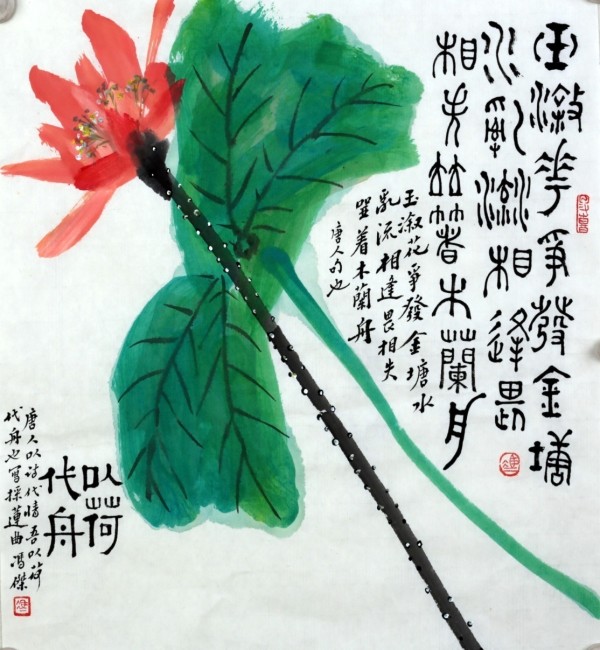 玉漵花爭發金塘
水亂流相逢畏
相失竝著木蘭舟
玉漵花爭發金塘水
亂流相逢畏相失
竝着木蘭舟
唐人句也
以荷
代舟
唐人以詩代情吾以荷
代舟也寫採蓮曲馮傑